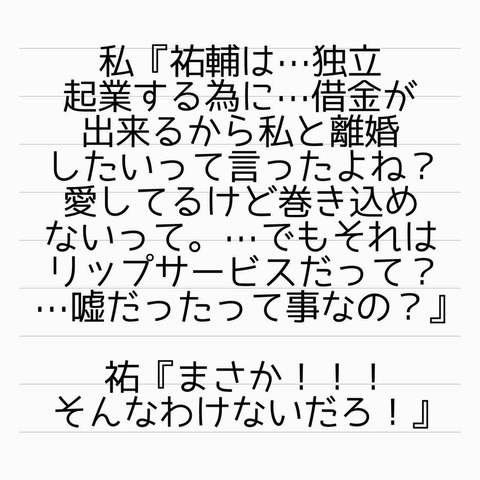 私『祐輔は…独立
起業する為に…借金が
出来るから私と離婚
したいって言ったよね？
愛してるけど巻き込め
ないって。…でもそれは
リップサービスだって？
…嘘だったって事なの？』
祐『まさか！！！
そんなわけないだろ！』